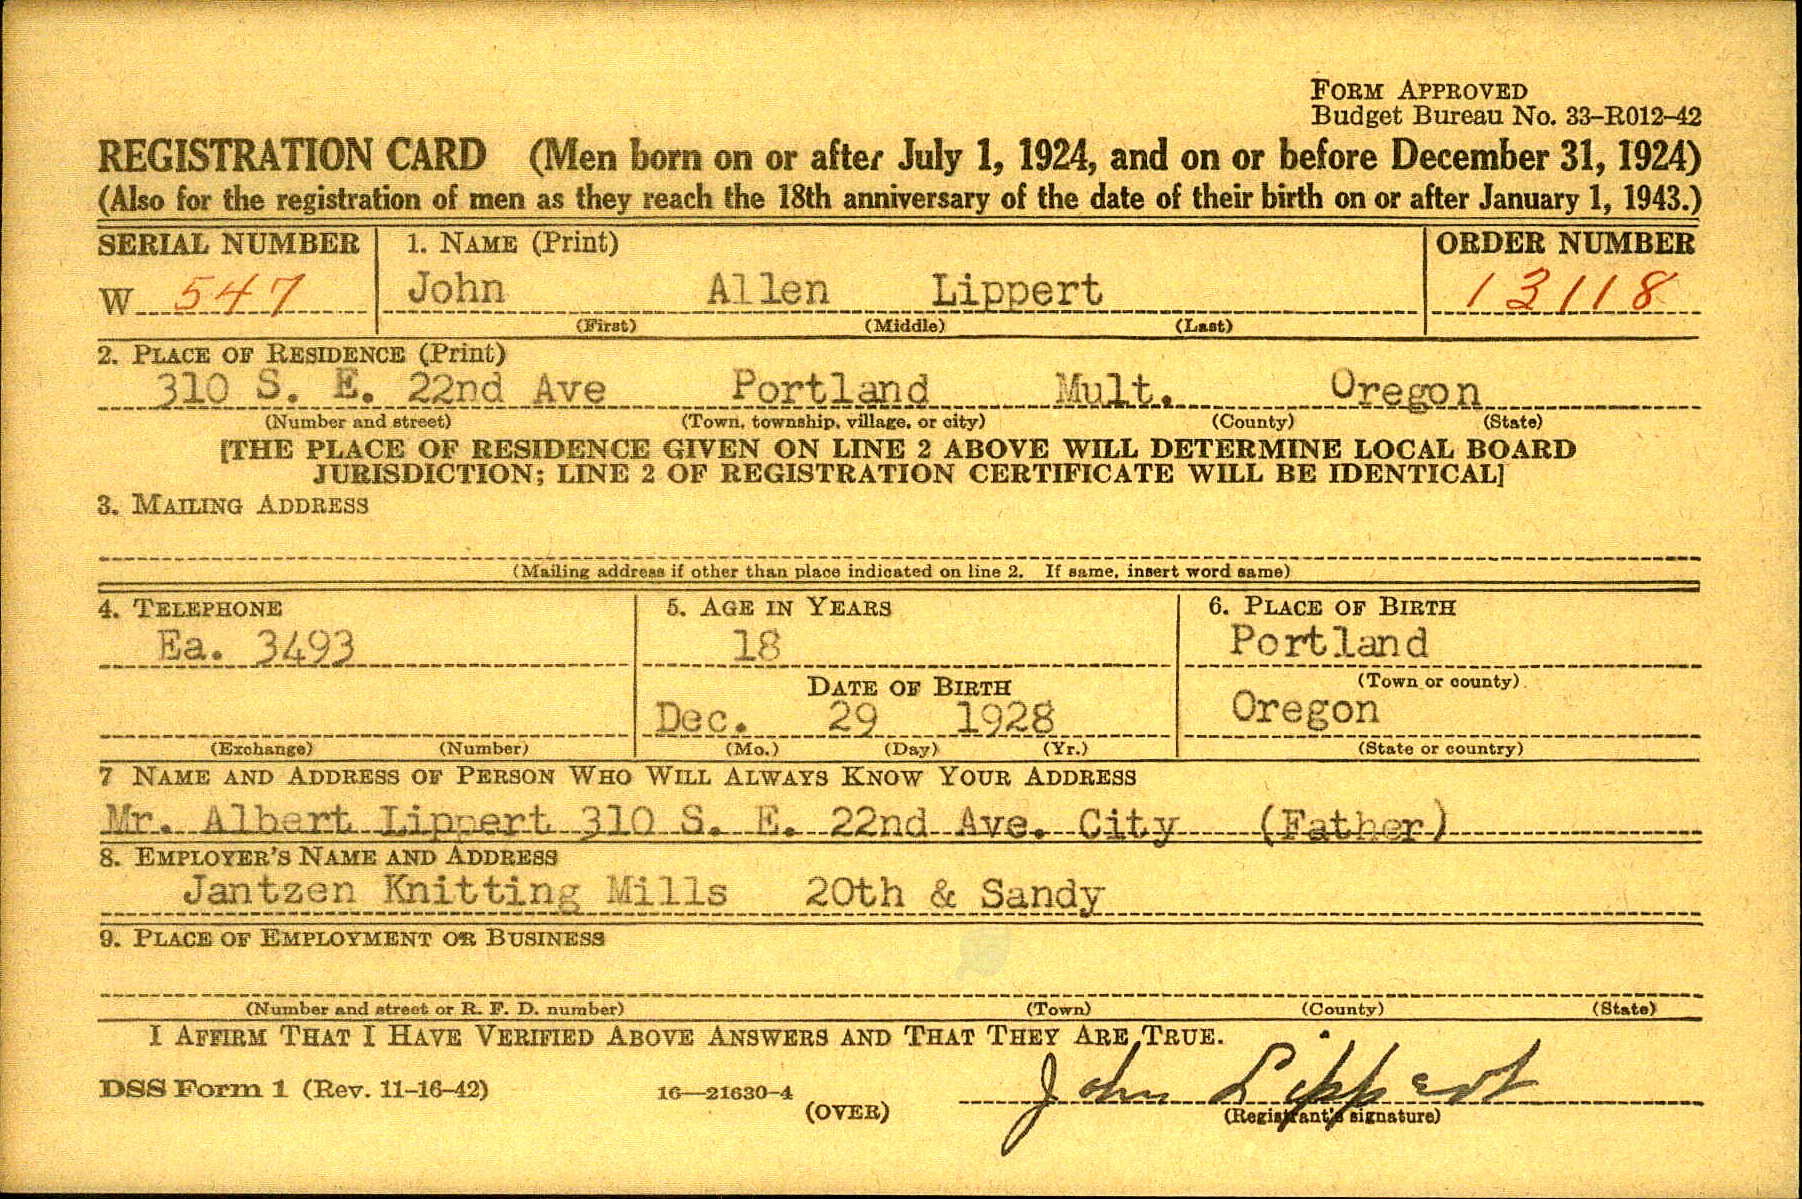 FORM APPROVED
Budget Bureau No. 33–R012–42
REGISTRATION CARD (Men born on or after July 1, 1924, and on or before December 31, 1924)
(Also for the registration of men as they reach the 18th anniversary of the date of their birth on or after January 1, 1943.)
SERIAL NUMBER 1. NAME (Print) ORDER NUMBER
W 547 John Allen Lippert 13118
(First) (Middle) (Last)
2. PLACE OF RESIDENCE (Print)
310 S. E. 22nd Ave Portland Mult. Oregon
(Number and street) (Town, township, village, or city) (County) (State)
[THE PLACE OF RESIDENCE GIVEN ON LINE 2 ABOVE WILL DETERMINE LOCAL BOARD
JURISDICTION; LINE 2 OF REGISTRATION CERTIFICATE WILL BE IDENTICAL]
3. MAILING ADDRESS
(Mailing address if other than place indicated on line 2. If same, insert word same)
4. TELEPHONE 5. AGE IN YEARS 6. PLACE OF BIRTH
Ea. 3493 18 Portland
DATE OF BIRTH (Town or county)
Dec. 29 1928 Oregon
(Exchange) (Number) (Mo.) (Day) (Yr.) (State or country)
7 NAME AND ADDRESS OF PERSON WHO WILL ALWAYS KNOW YOUR ADDRESS
Mr. Albert Lippert 310 S. E. 22nd Ave. City (Father)
8. EMPLOYER'S NAME AND ADDRESS
Jantzen Knitting Mills 20th & Sandy
9. PLACE OF EMPLOYMENT OR BUSINESS
(Number and street or R. F. D. number) (Town) (County) (State)
I AFFIRM THAT I HAVE VERIFIED ABOVE ANSWERS AND THAT THEY ARE TRUE.
DSS Form 1 (Rev. 11–16–42) 16—21630-4 (OVER) John Lippert
(Registrant's signature)